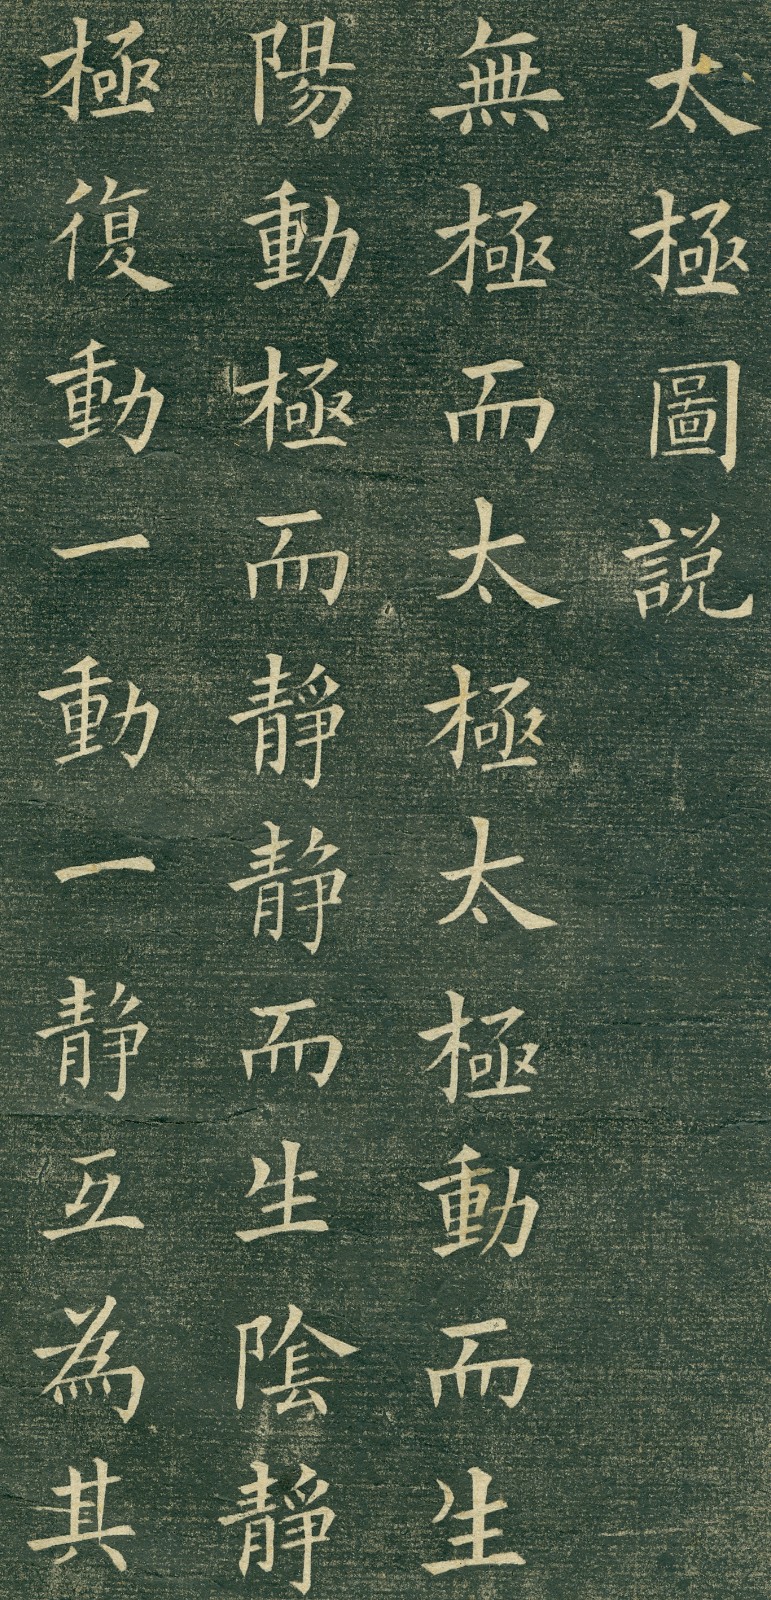 太極圖説
無極而太極太極動而生
陽動極而静靜而生陰靜
極復動一動一静互為其